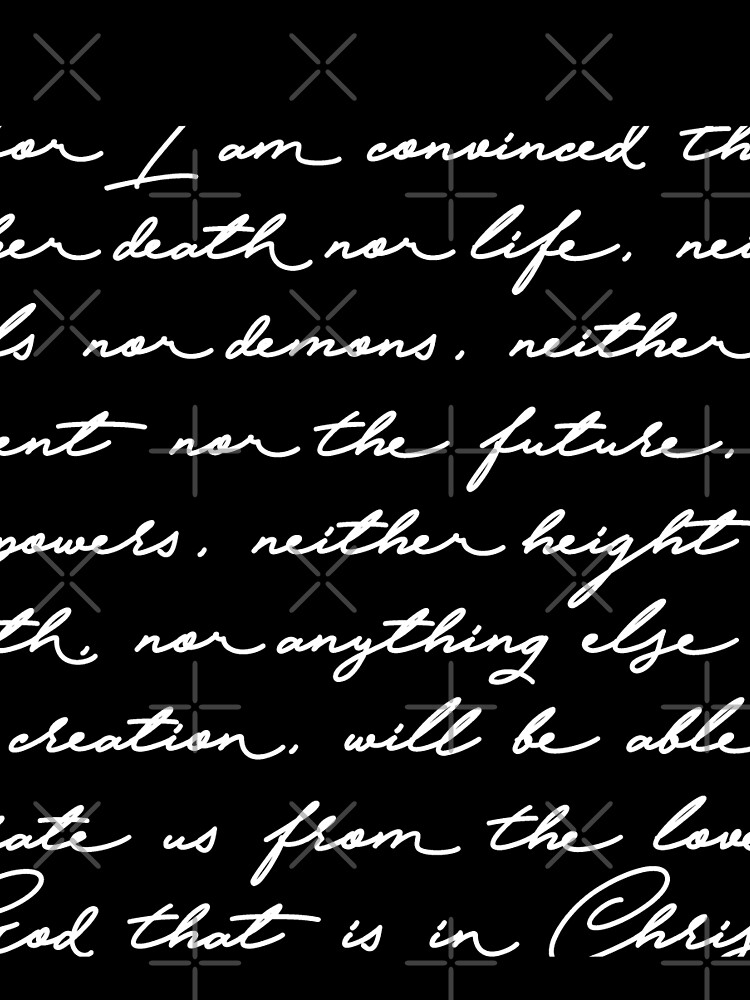 or I am convinced th
her death nor life, nei
ls nor demons, neither
ent nor the future,
powers, neither height
th, nor anything else
creation, will be able
ate us from the love
God that is in Chris